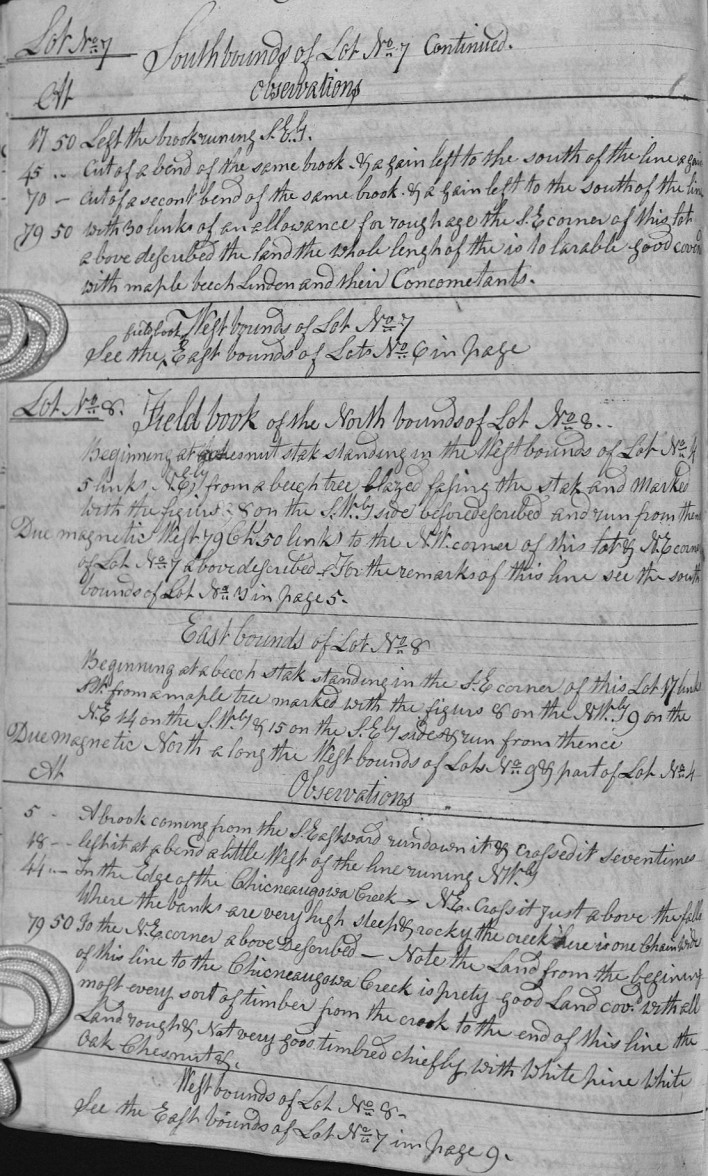 Lot No. 7 Southbounds of Lot No. 7 Continued.
At Observations
17 50 Left the brook runing S.E.ly.
45 .. Cut of a bend of the same brook & again left to the south of the line again
70 — Cut of a secont bend of the same brook & again left to the south of the line
79 50 with 30 links of an allowance for roughage the S.E corner of this Lot
above described the land the whole lengh of the is to larable good coverd
with maple beech Linden and their Concometants.
West bounds of Lot No. 7
field book
See the East bounds of Lots No. 6 in page
Lot No. 8. Field book of the North bounds of Lot No. 8..
Beginning at chesnut stak standing in the West bounds of Lot No. 4
5 links N.E.ly from a beech tree blazed fasing the stak and Marked
with the figurs 8 on the S.W.ly side before described and run from thence
Due magnetic West 79 Ch. 50 links to the N.W. corner of this Lot & N.E corner
of Lot No. 7 above described — For the remarks of this line see the south
bounds of Lot No. 3 in page 5.
East bounds of Lot No. 8
Beginning at a beech stak standing in the S.E corner of this Lot 17 links
S.W. from a maple tree marked with the figurs 8 on the N.W.ly 9 on the
N.E 14 on the S.W.ly & 15 on the S.E.ly sides & run from thence
Due magnetic North along the West bounds of Lots No. 9 & part of Lot No. 4
At Observations
5 - A brook coming from the S. Eastward rundown it & crossed it seven times
18 -- left it at a bend a little West of the line runing N.W.ly
44 .. — In the Edge of the Chicneaugowa Creek — N.E. Cross it just above the falls
Where the banks are very high steep & rocky the creek here is one Chain wide
79 50 To the N.E corner above Described — Note the Land from the begining
of this line to the Chicneaugowa Creek is prety good Land cov.d with all
most every sort of timber from the creek to the end of this line the
Land rough & Not very good timbred chiefly with White pine White
Oak Chesnut &.
West bounds of Lot No. 8 -
See the East bounds of Lot No. 7 in page 9.